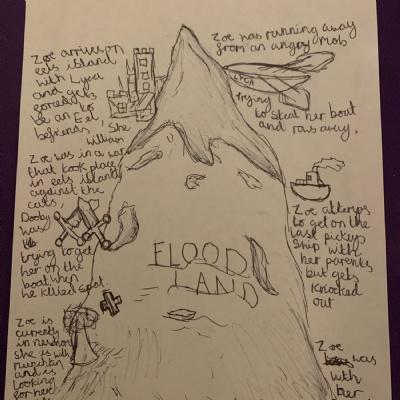 Zoe arrives on
eels island
with Lyca
and gets
forced to
be an Eel
befriends, She
William
Zoe was in a war
that took place
in eels island
against the
cats,
Dooby
was
trying to get
her on the
boat when
he killed spat
Zoe is
currently
in
she is with
and is
looking
for her
Zoe was running away
from an angry mob
LYCA
trying
to steal her boat
and row away.
Zoe attemps
to get on the
last pickup
ship with
her parents
but gets
knocked
out
Zoe
was
with
her
FLOOD
LAND